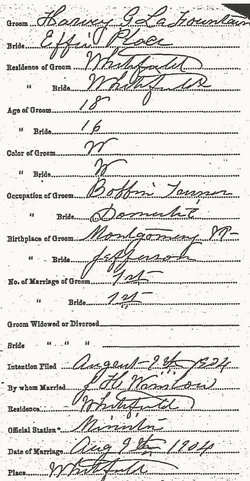 Groom Harvey G LaFountain
Bride Effie Place
Residence of Groom Whitefield
" Bride Whitefield
Age of Groom 18
" Bride 16
Color of Groom W
" Bride W
Occupation of Groom Bobbin Turner
" Bride Domestic
Birthplace of Groom Montgomery
" Bride Jefferson
No. of Marriage of Groom 1st
" Bride 1st
Groom Widowed or Divorced
Bride " " "
Intention Filed August 9th 1904
By whom Married Winslow
Residence Whitefield
Official Station Minister
Date of Marriage Aug 9th 1904
Place Whitefield